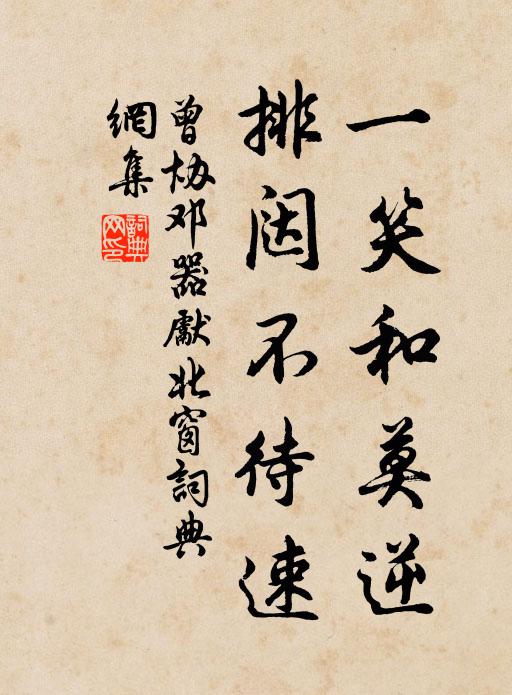 一笑和莫逆
排闼不待速
曾协邓器獻北窗詞典
網集
詞典
网印